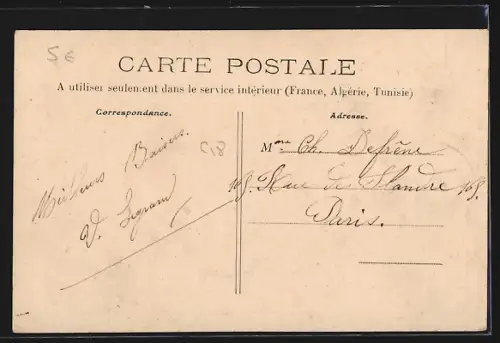 5 €
CARTE POSTALE
A utiliser seulement dans le service intérieur (France, Algérie, Tunisie)
Correspondance.
Adresse.
Meilleurs Baisers.
V. Legrand
C18
Mme Ch. Defrêne
165 Rue de Flandre 165.
Paris.